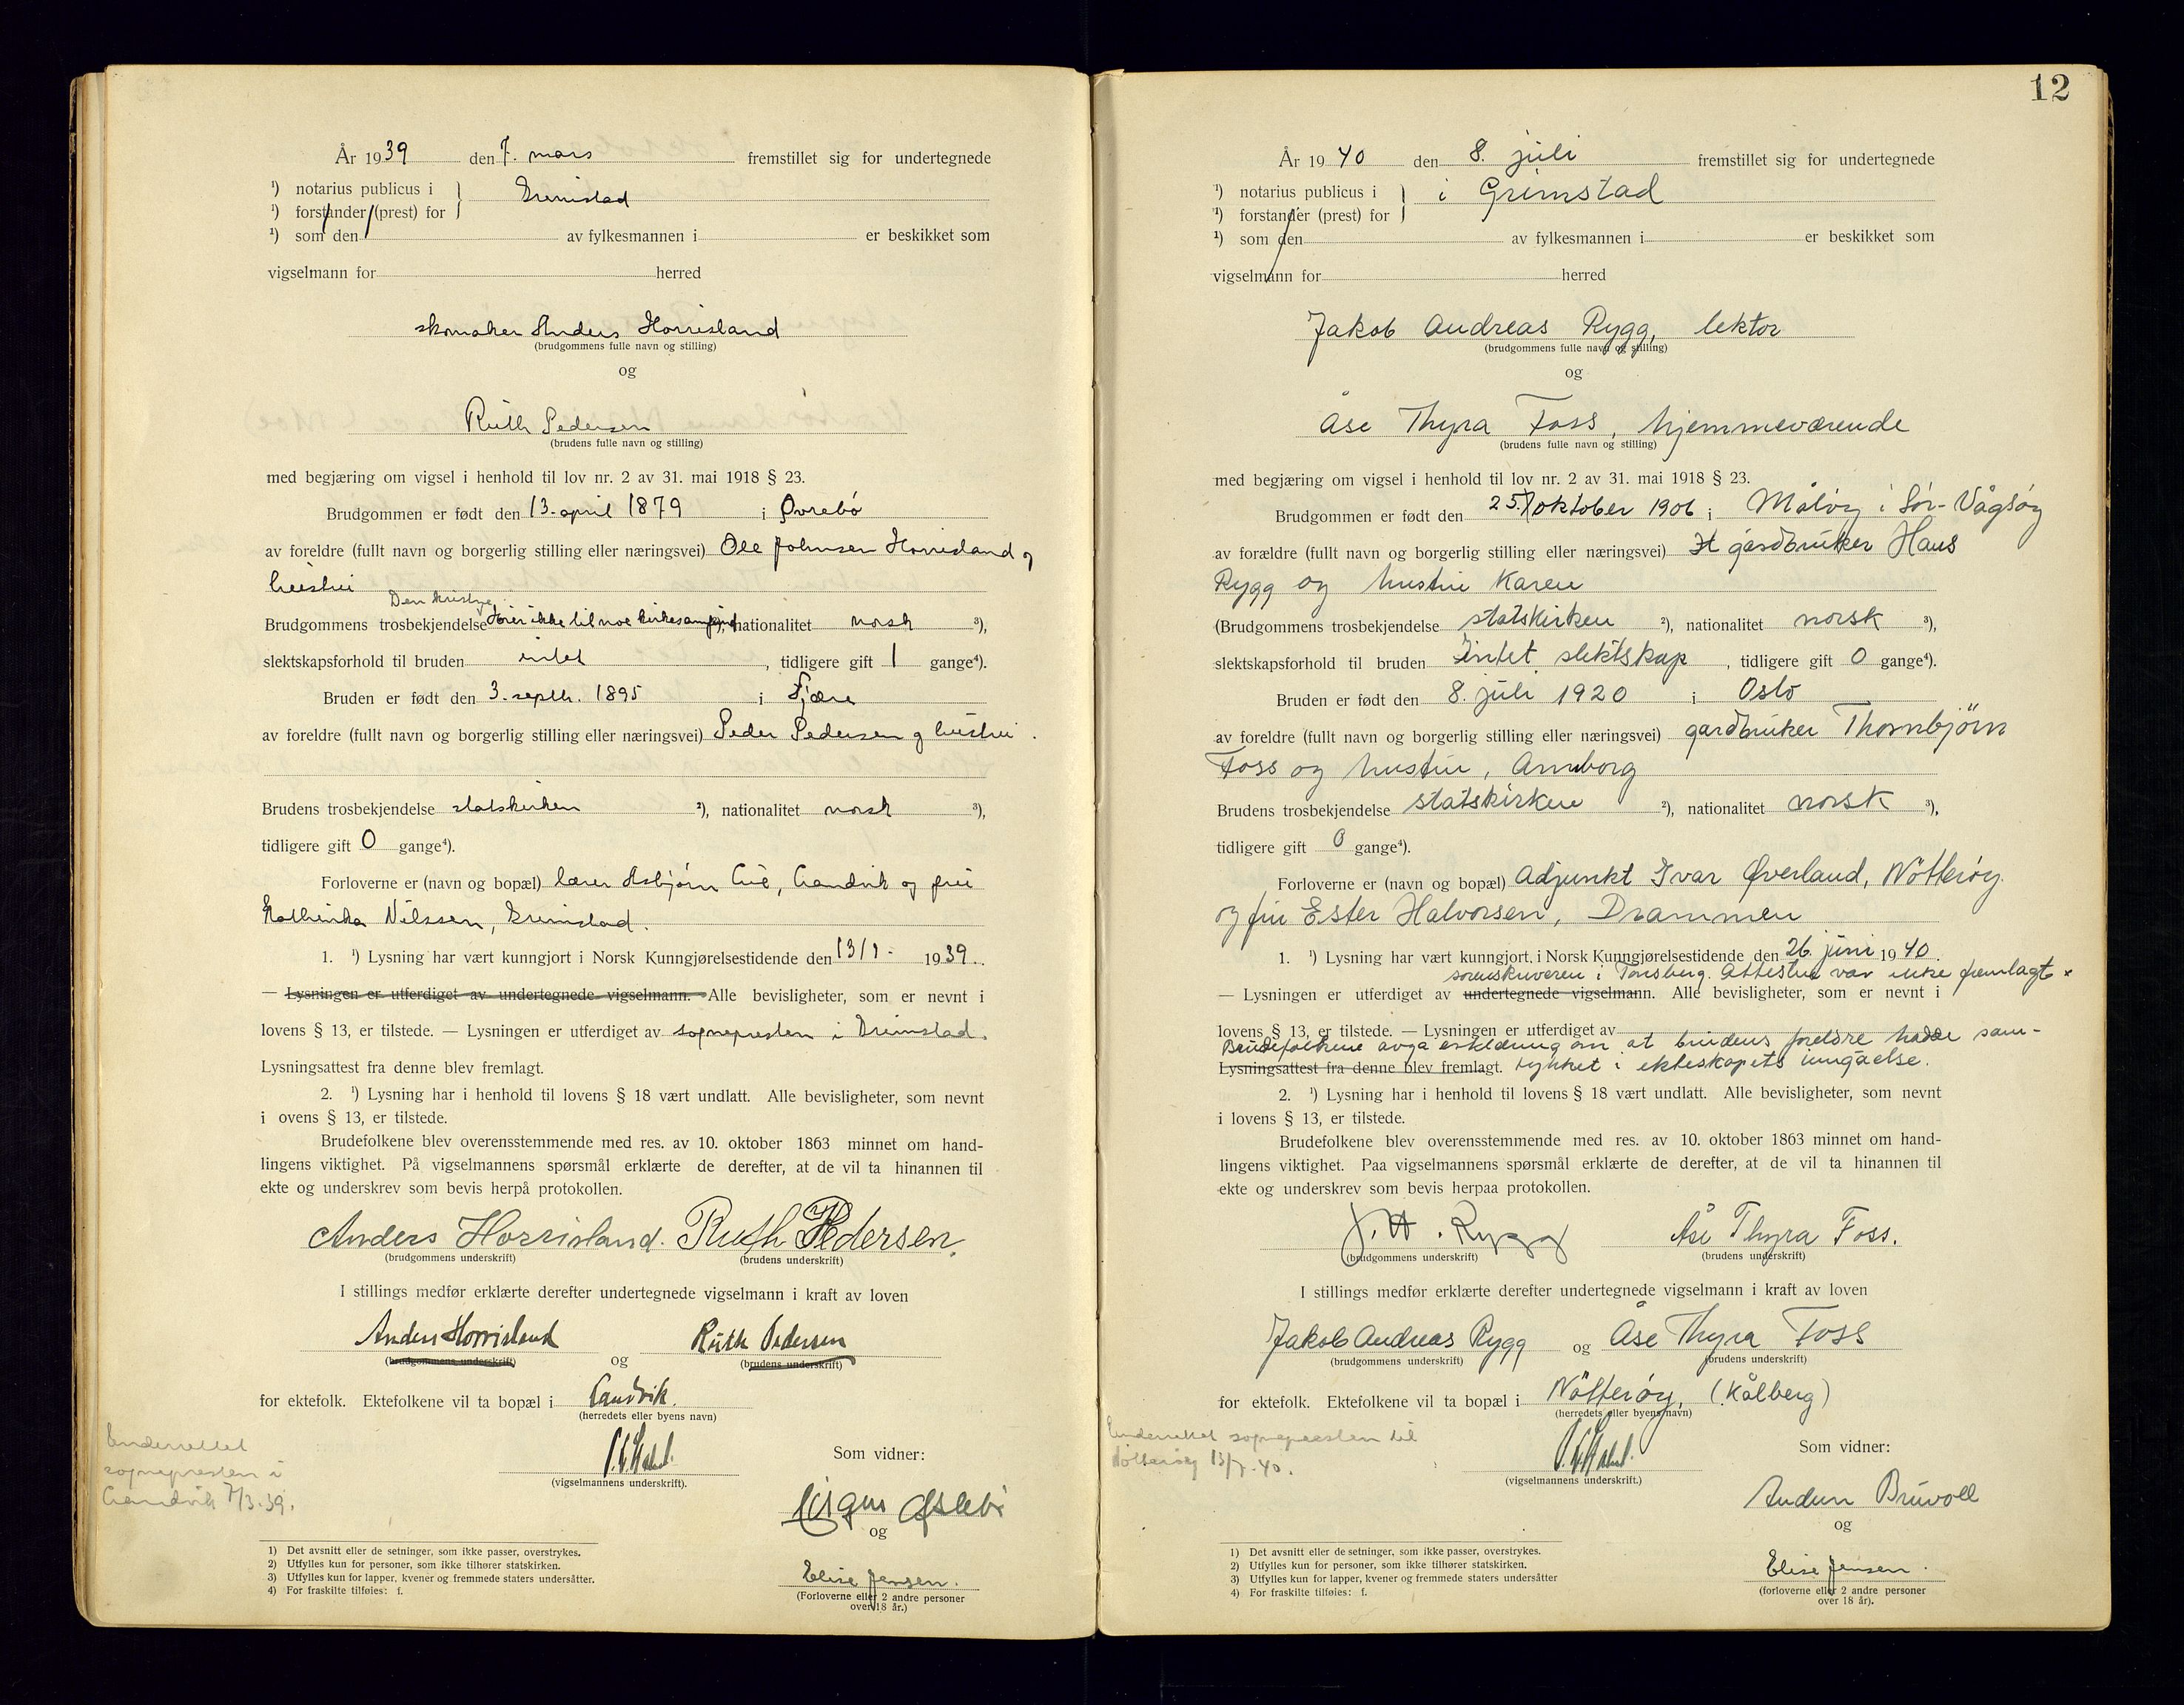 År 1939 den 7. mars fremstillet sig for undertegnede
¹) notarius publicus i
Grimstad
¹) forstander (prest) for
¹) som den av fylkesmannen i er beskikket som
vigselmann for herred
skomaker Anders Horrisland
(brudgommens fulle navn og stilling)
og
Ruth Pedersen
(brudens fulle navn og stilling)
med begjæring om vigsel i henhold til lov nr. 2 av 31. mai 1918 § 23.
Brudgommen er født den 13. april 1879 i Øvrebø
av foreldre (fullt navn og borgerlig stilling eller næringsvei) Ole Johnsen Horrisland og
hustru
Den kristne
Brudgommens trosbekjendelse Hører ikke til noe kirkesamfund ²), nationalitet norsk ³),
slektskapsforhold til bruden intet, tidligere gift 1 gange⁴).
Bruden er født den 3. septbr. 1895 i Fjære
av foreldre (fullt navn og borgerlig stilling eller næringsvei) Peder Pedersen og hustru.
Brudens trosbekjendelse statskirken ²), nationalitet norsk ³),
tidligere gift 0 gange⁴).
Forloverne er (navn og bopæl) lærer Asbjørn Lie, Landvik og fru
Kathinka Nilssen, Grimstad.
1. ¹) Lysning har vært kunngjort i Norsk Kunngjørelsestidende den 13/1 - 1939.
— Lysningen er utferdiget av undertegnede vigselmann. Alle bevisligheter, som er nevnt i
lovens § 13, er tilstede. — Lysningen er utferdiget av sognepresten i Grimstad.
Lysningsattest fra denne blev fremlagt.
2. ¹) Lysning har i henhold til lovens § 18 vært undlatt. Alle bevisligheter, som nevnt
i ovens § 13, er tilstede.
Brudefolkene blev overensstemmende med res. av 10. oktober 1863 minnet om hand-
lingens viktighet. På vigselmannens spørsmål erklærte de derefter, at de vil ta hinannen til
ekte og underskrev som bevis herpå protokollen.
Anders Horrisland. Ruth Pedersen.
(brudgommens underskrift) (brudens underskrift)
I stillings medfør erklærte derefter undertegnede vigselmann i kraft av loven
Anders Horrisland og Ruth Pedersen
(brudgommens underskrift) (brudens underskrift)
for ektefolk. Ektefolkene vil ta bopæl i Landvik.
(herredets eller byens navn)
Underrettet
sognepresten i
Landvik 7/3.39.
(vigselmannens underskrift).
Som vidner:
og
Elise Jensen.
(Forloverne eller 2 andre personer
over 18 år.)
1) Det avsnitt eller de setninger, som ikke passer, overstrykes.
2) Utfylles kun for personer, som ikke tilhører statskirken.
3) Utfylles kun for lapper, kvener og fremmede staters undersåtter.
4) For fraskilte tilføies: f.
12
År 1940 den 8. juli fremstillet sig for undertegnede
¹) notarius publicus i
i Grimstad
¹) forstander (prest) for
¹) som den av fylkesmannen i er beskikket som
vigselmann for herred
Jakob Andreas Rygg, lektor
(brudgommens fulle navn og stilling)
og
Åse Thyra Foss, hjemmeværende
(brudens fulle navn og stilling)
med begjæring om vigsel i henhold til lov nr. 2 av 31. mai 1918 § 23.
Brudgommen er født den 25. oktober 1906 i Måløy i Sør-Vågsøy
av forældre (fullt navn og borgerlig stilling eller næringsvei) H gårdbruker Hans
Rygg og hustru Karen
(Brudgommens trosbekjendelse statskirken ²), nationalitet norsk ³),
slektskapsforhold til bruden Intet slektskap, tidligere gift 0 gange⁴).
Bruden er født den 8. juli 1920 i Oslo
av foreldre (fullt navn og borgerlig stilling eller næringsvei) gardbruker Thornbjørn
Foss og hustru, Arnborg
Brudens trosbekjendelse statskirken ²), nationalitet norsk ³),
tidligere gift 0 gange⁴).
Forloverne er (navn og bopæl) Adjunkt Ivar Øverland, Nøtterøy
og fru Ester Halvorsen, Drammen
1. ¹) Lysning har vært kunngjort i Norsk Kunngjørelsestidende den 26. juni 1940.
sorenskriveren i Tønsberg. Attesten var ikke fremlagt x
— Lysningen er utferdiget av undertegnede vigselmann. Alle bevisligheter, som er nevnt i
lovens § 13, er tilstede. — Lysningen er utferdiget av
Brudefolkene avga erklæring om at brudens foreldre hadde sam-
Lysningsattest fra denne blev fremlagt. tykket i ekteskapets inngåelse.
2. ¹) Lysning har i henhold til lovens § 18 vært undlatt. Alle bevisligheter, som nevnt
i lovens § 13, er tilstede.
Brudefolkene blev overensstemmende med res. av 10. oktober 1863 minnet om hand-
lingens viktighet. Paa vigselmannens spørsmål erklærte de derefter, at de vil ta hinannen til
ekte og underskrev som bevis herpaa protokollen.
J. A. Rygg Åse Thyra Foss.
(brudgommens underskrift) (brudens underskrift)
I stillings medfør erklærte derefter undertegnede vigselmann i kraft av loven
Jakob Andreas Rygg og Åse Thyra Foss
(brudgommens underskrift) (brudens underskrift)
for ektefolk. Ektefolkene vil ta bopæl i Nøtterøy, (Kålberg)
(herredets eller byens navn)
Underrettet sognepresten til
Nøtterøy 13/7-40.
(vigselmannens underskrift.)
Som vidner:
Bruvoll
og
Elise Jensen.
(forloverne eller 2 andre personer
over 18 år).
1) Det avsnitt eller de setninger, som ikke passer, overstrykes.
2) Utfylles kun for personer, som ikke tilhører statskirken.
3) Utfylles kun for lapper, kvener og fremmede staters undersåtter
4) For fraskilte tilføies: f.